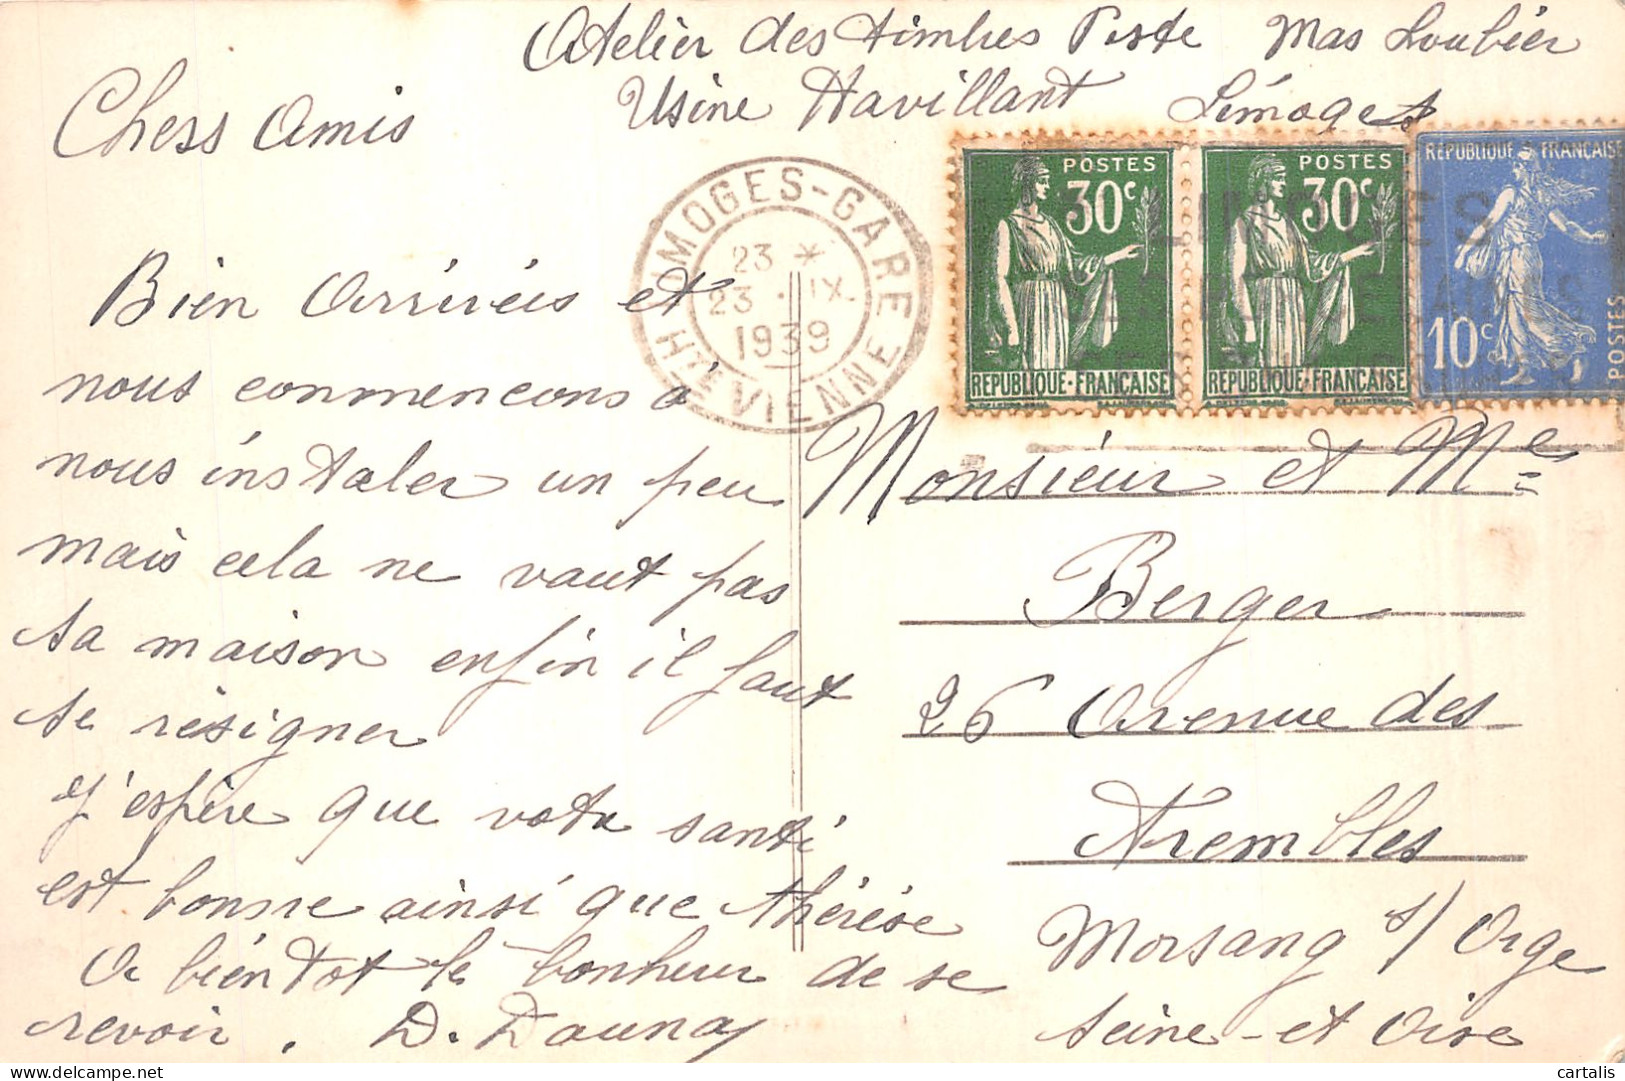 Atelier des timbres Poste Mas Loubier
Usine Havillant Limoges
Chers Amis
LIMOGES-GARE
23 *
23 · IX
1939
HTE VIENNE
POSTES
30c
REPUBLIQUE·FRANÇAISE
POSTES
30c
REPUBLIQUE·FRANÇAISE
REPUBLIQUE FRANÇAISE
10c
POSTES
LIMOGES
Bien Arrivés et
nous commencons à
nous instaler un peu
mais cela ne vaut pas
sa maison enfin il faut
se résigner
J'espère que votre santé
est bonne ainsi que thérèse
A bientot le bonheur de se
revoir. D. Daunay
Monsieur et Me
Berger
26 Avenue des
Trembles
Morsang s/ Orge
Seine-et Oise
delcampe.net
cartalis